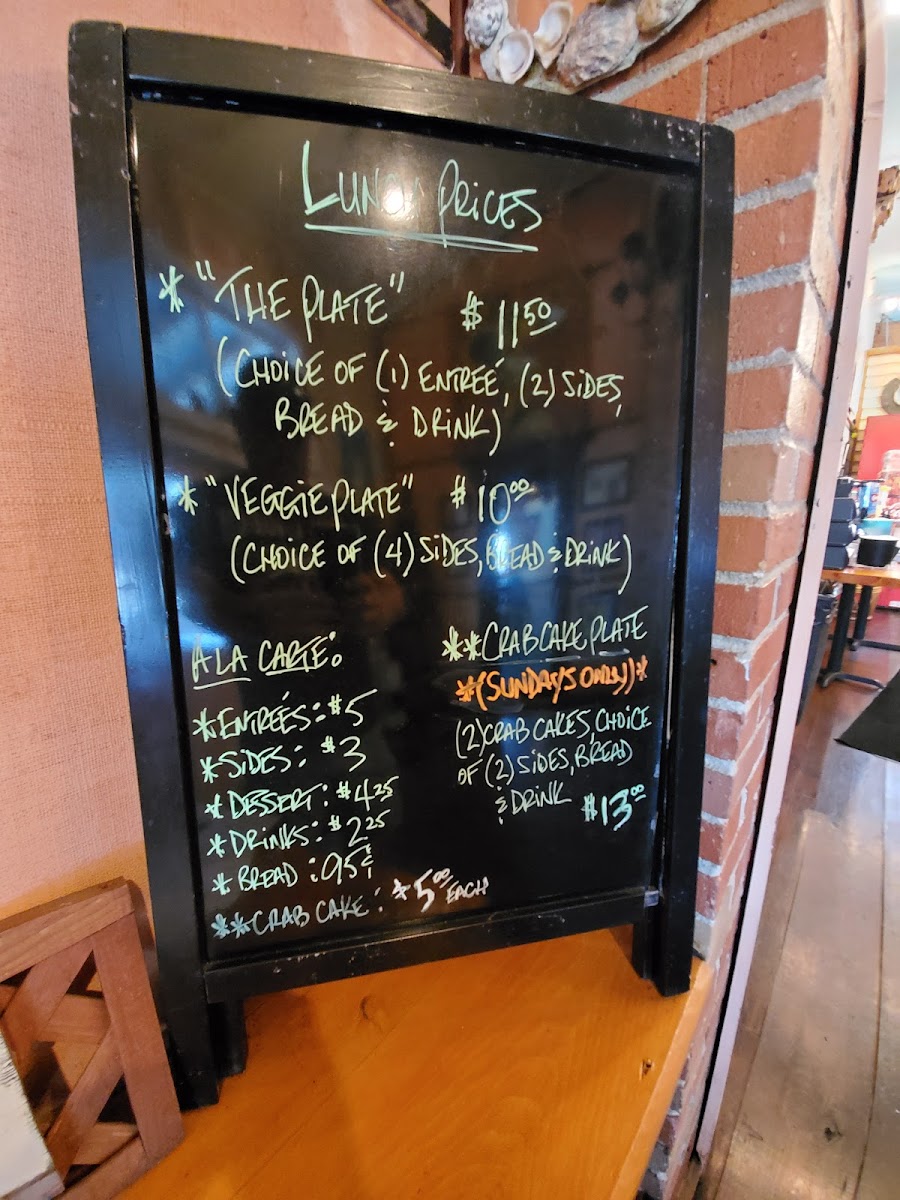 LUNCH PRICES
* "THE PLATE" $11 50
(CHOICE OF (1) ENTREÉ, (2) SIDES,
BREAD & DRINK)
* "VEGGIE PLATE" $10 00
(CHOICE OF (4) SIDES, BREAD & DRINK)
A LA CARTE:
*ENTREÉS: $5
*SIDES: $3
*DESSERT: $4 25
*DRINKS: $2 25
*BREAD: 95¢
**CRAB CAKE: $5 00 EACH
**CRAB CAKE PLATE
*(SUNDAYS ONLY)*
(2) CRAB CAKES, CHOICE
OF (2) SIDES, BREAD
& DRINK $13 00